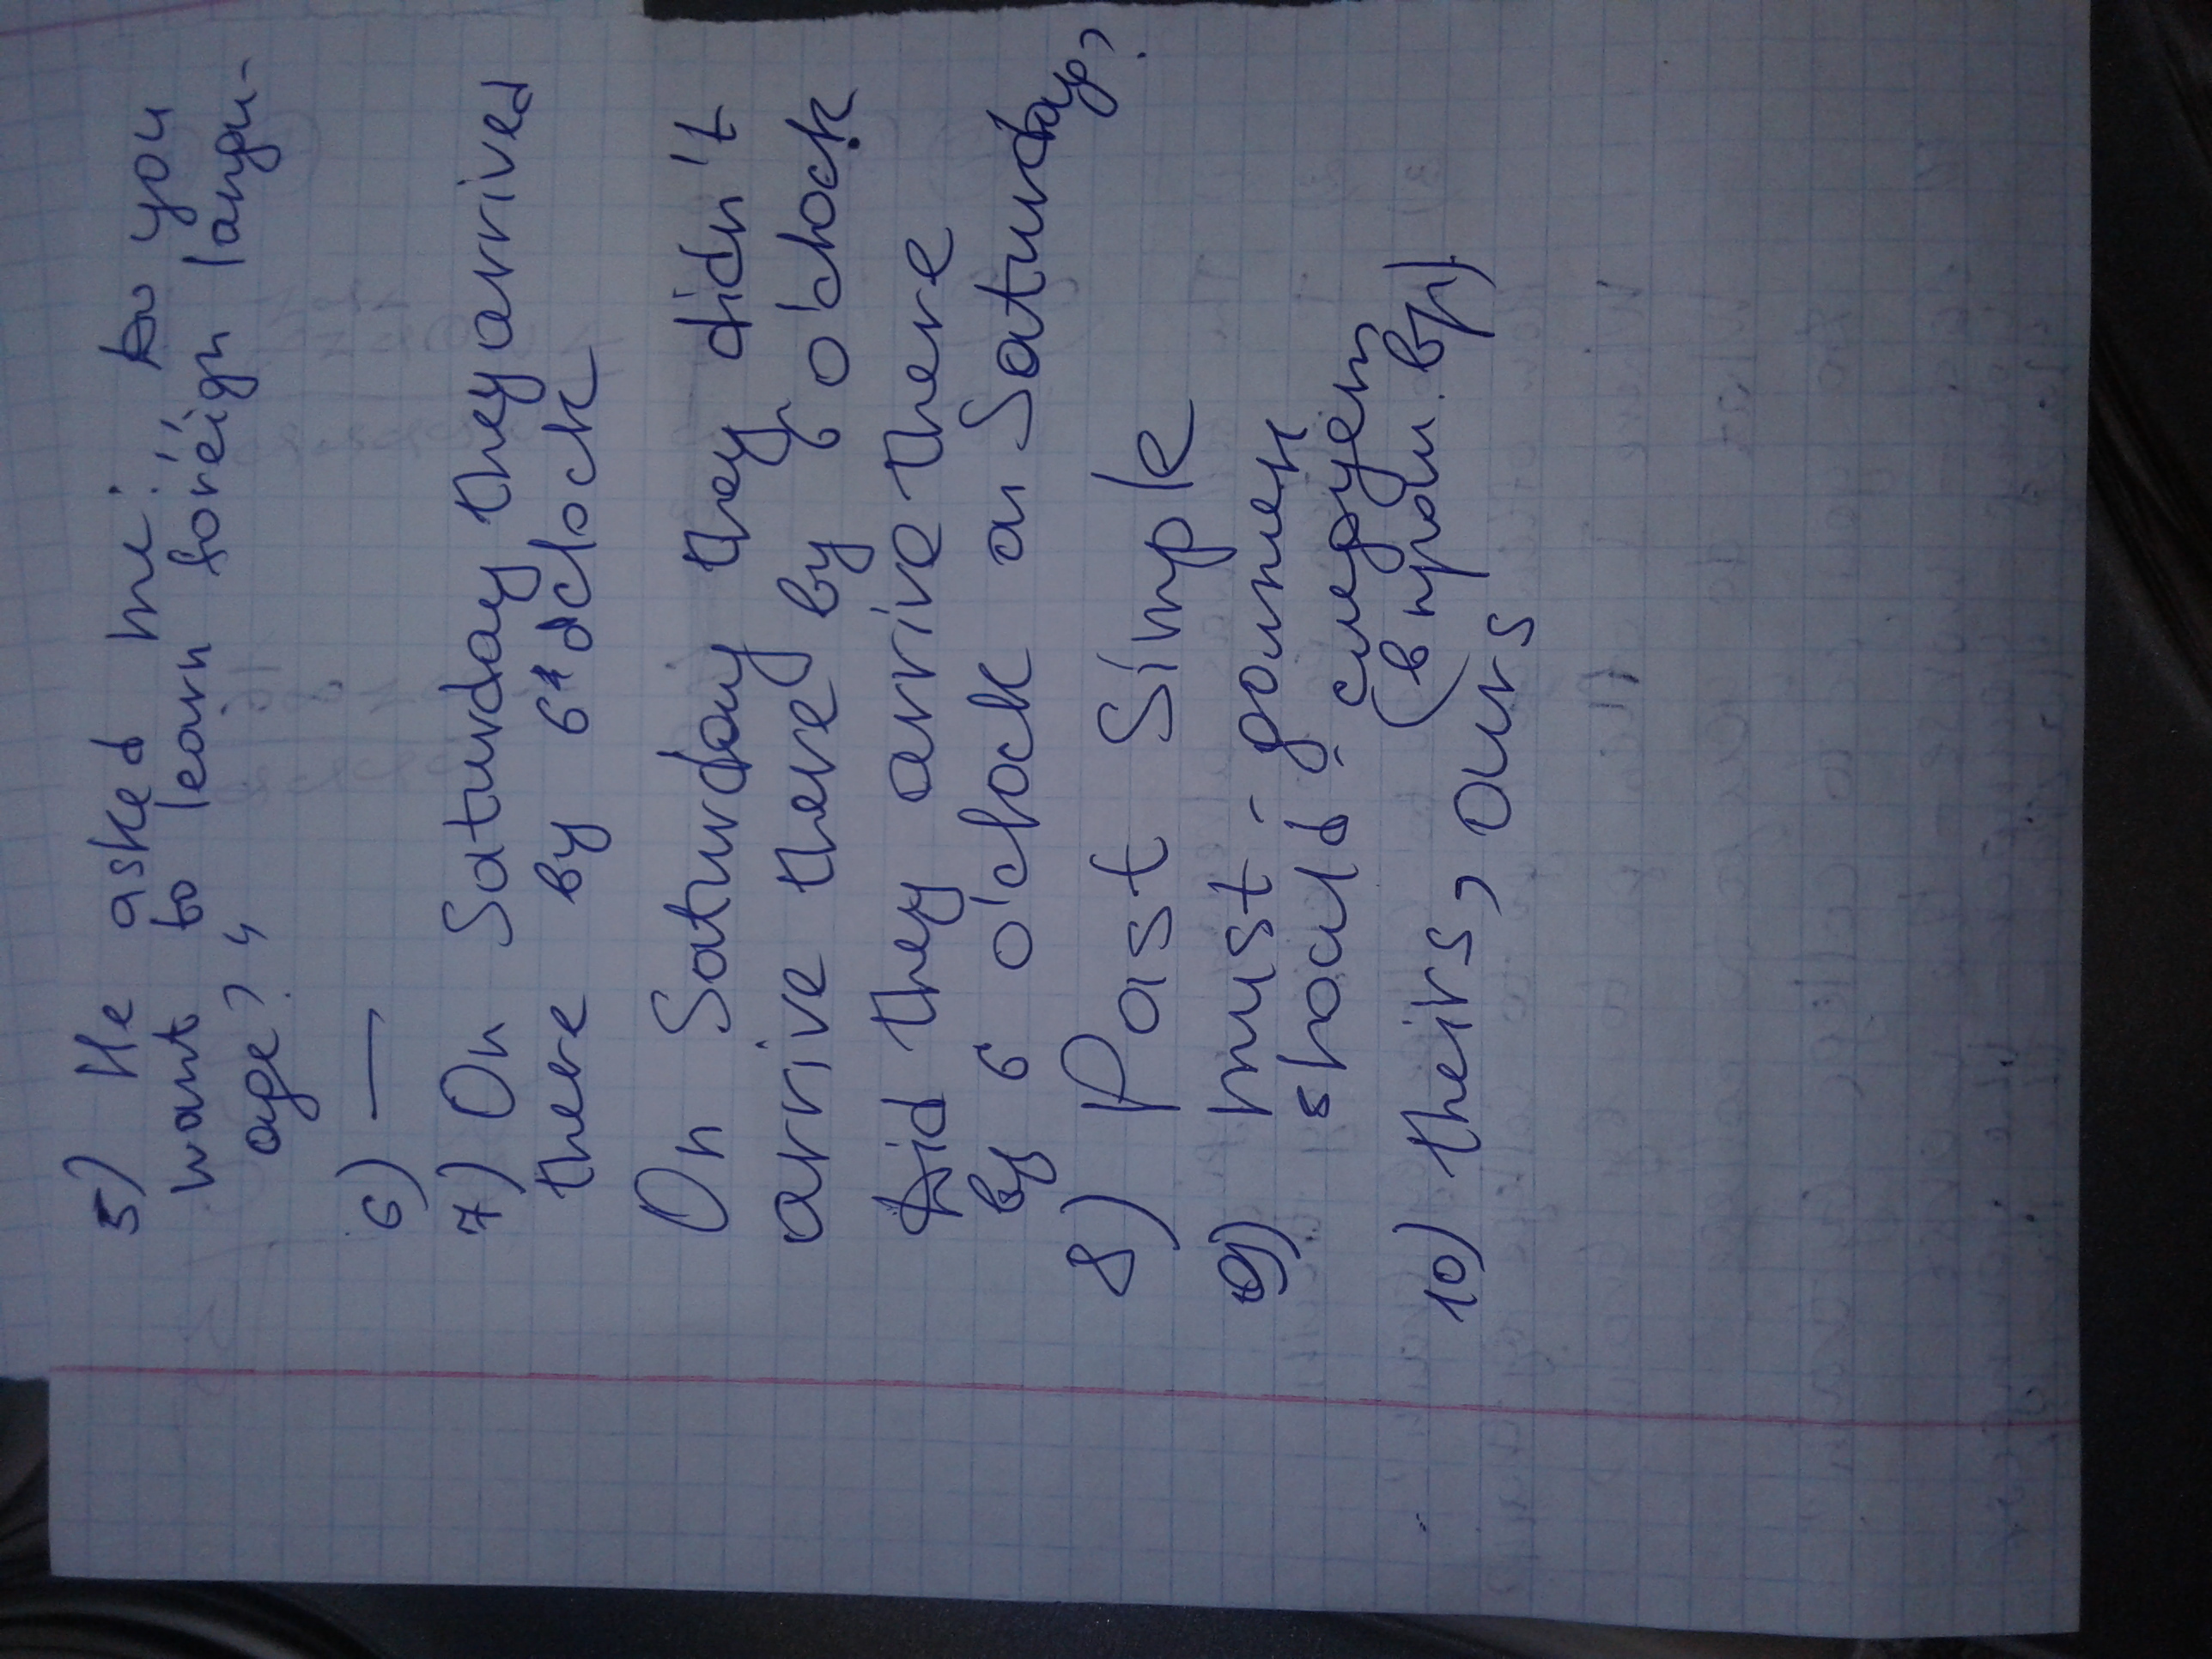 5) He asked me: "Do you
want to learn foreign langu-
age?"
6) —
7) On Saturday they arrived
there by 6 o'clock
On Saturday they didn't
arrive there by 6 o'clock
Did they arrive there
by 6 o'clock on Saturday?
8) Past Simple
9) must - должен
should - следует
(в прош. вр)
10) theirs, ours